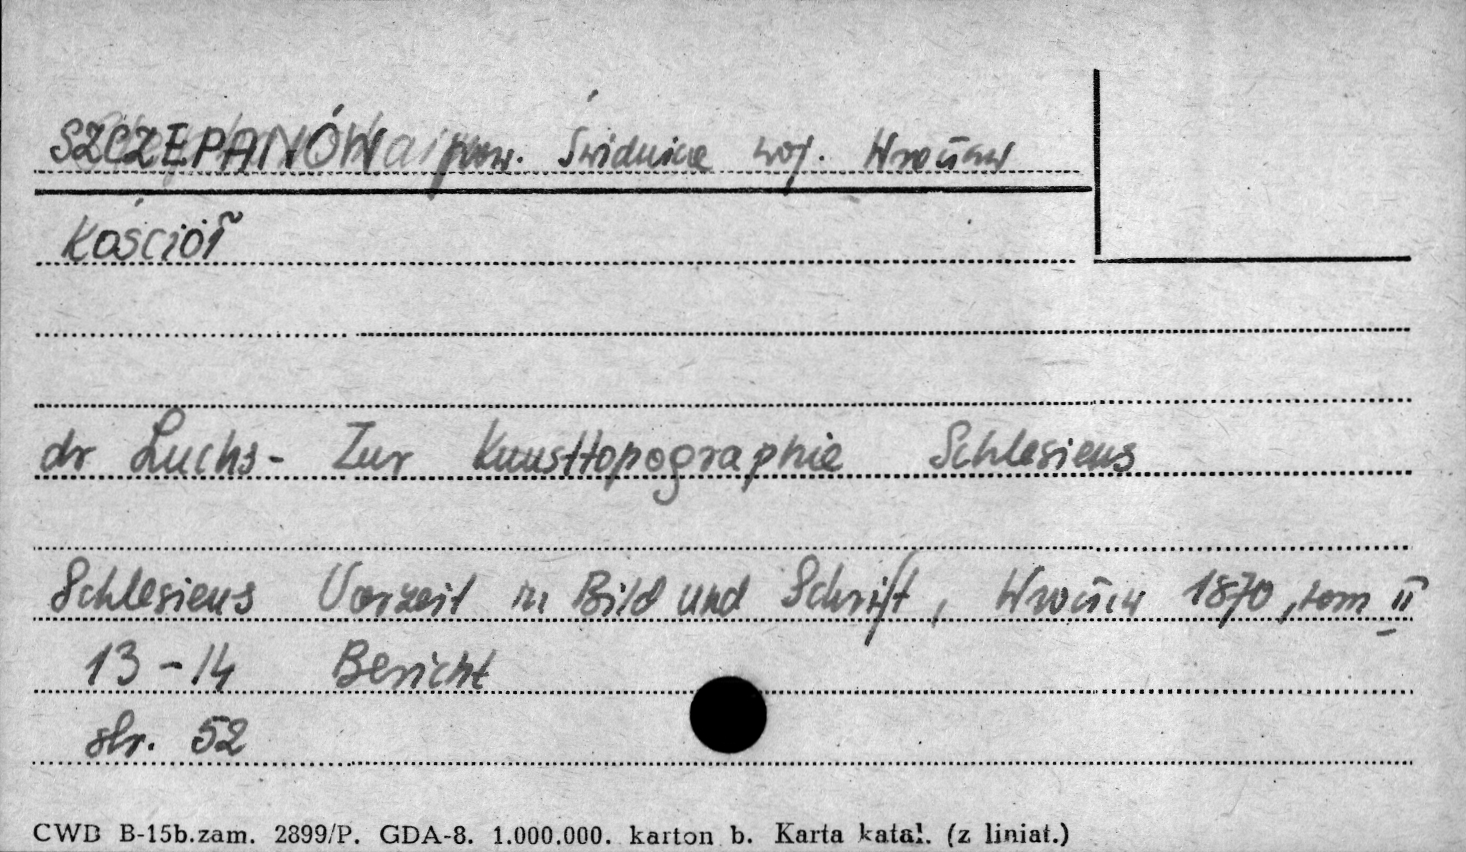 SZCZEPANÓW pow. Świdnica woj. Wrocław
Kościół
dr Luchs - Zur Kunsttopographie Schlesiens
Schlesiens Vorzeit in Bild und Schrift, Wrocław 1870, tom II
13-14 Bericht
str. 52
CWD B-15b.zam. 2899/P. GDA-8. 1.000.000. karton b. Karta katal. (z liniat.)